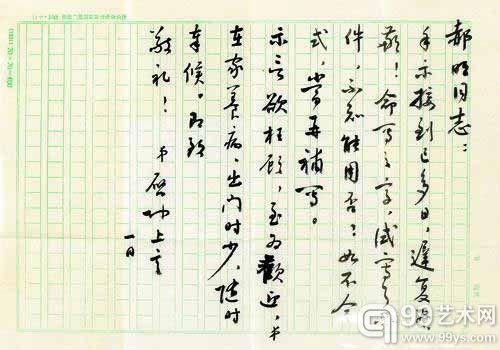 同志：
手示接到已多日，遲复
歉！命写之字，试写
件，不知能用否？如不合
式，当再補写。
示云欲枉顾，至为歡迎，弟
在家养病，出门时少，随时
奉候。即致
敬礼！ 弟 启功上言
一日
20×20=400
99艺术网
www.99ys.com